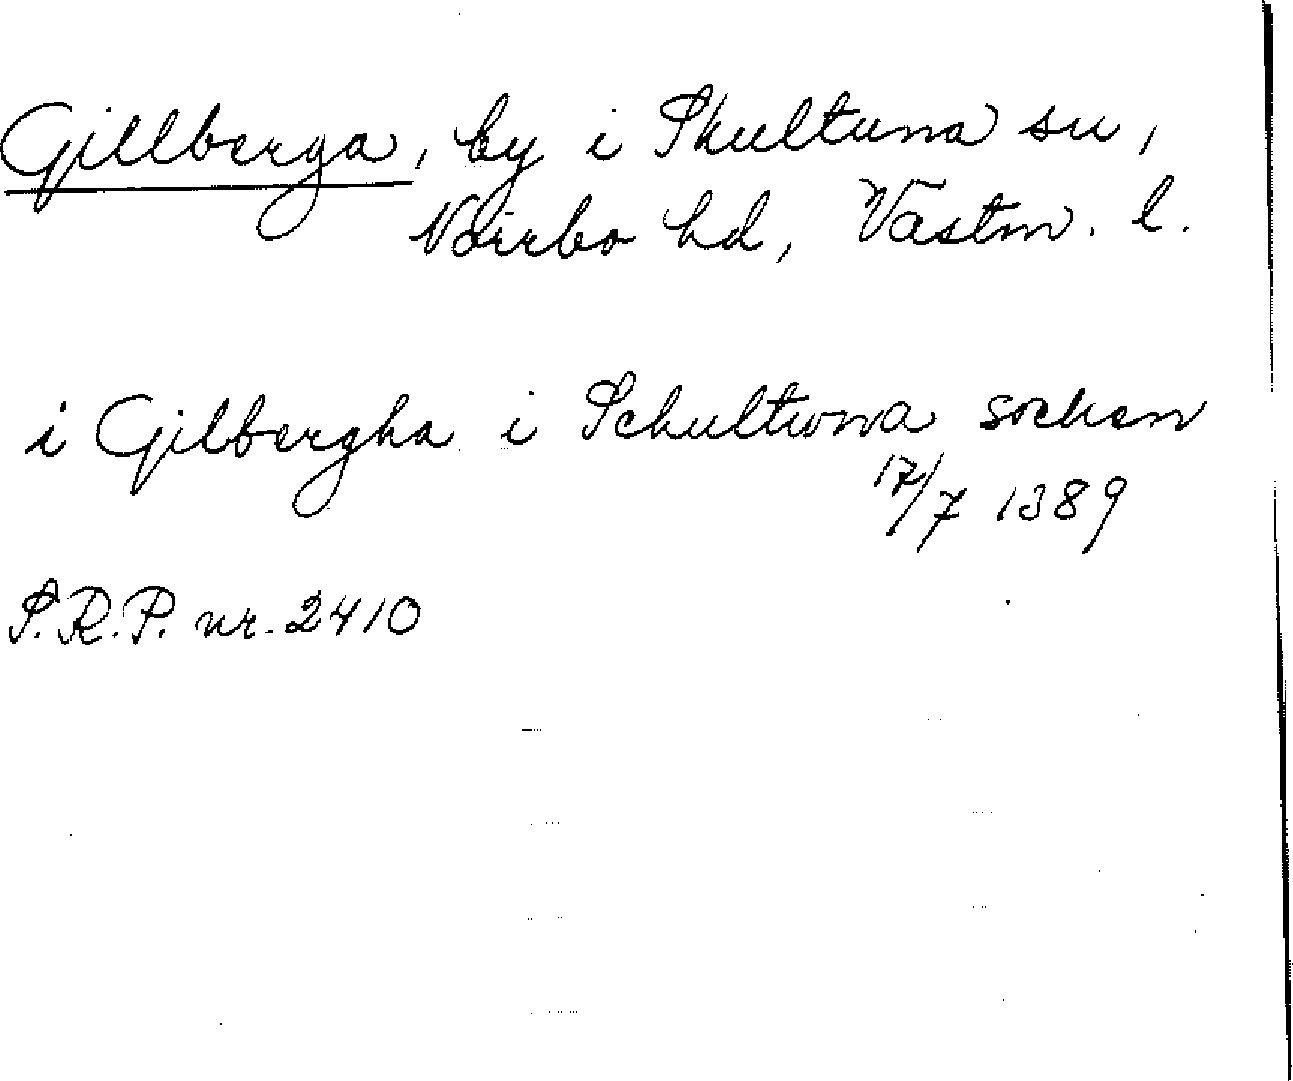 Gillberga, by i Skultuna sn,
Norrbo hd, Västm. l.
i Gilbergha i Schultuna socken
17/7 1389
S.R.P. nr. 2410